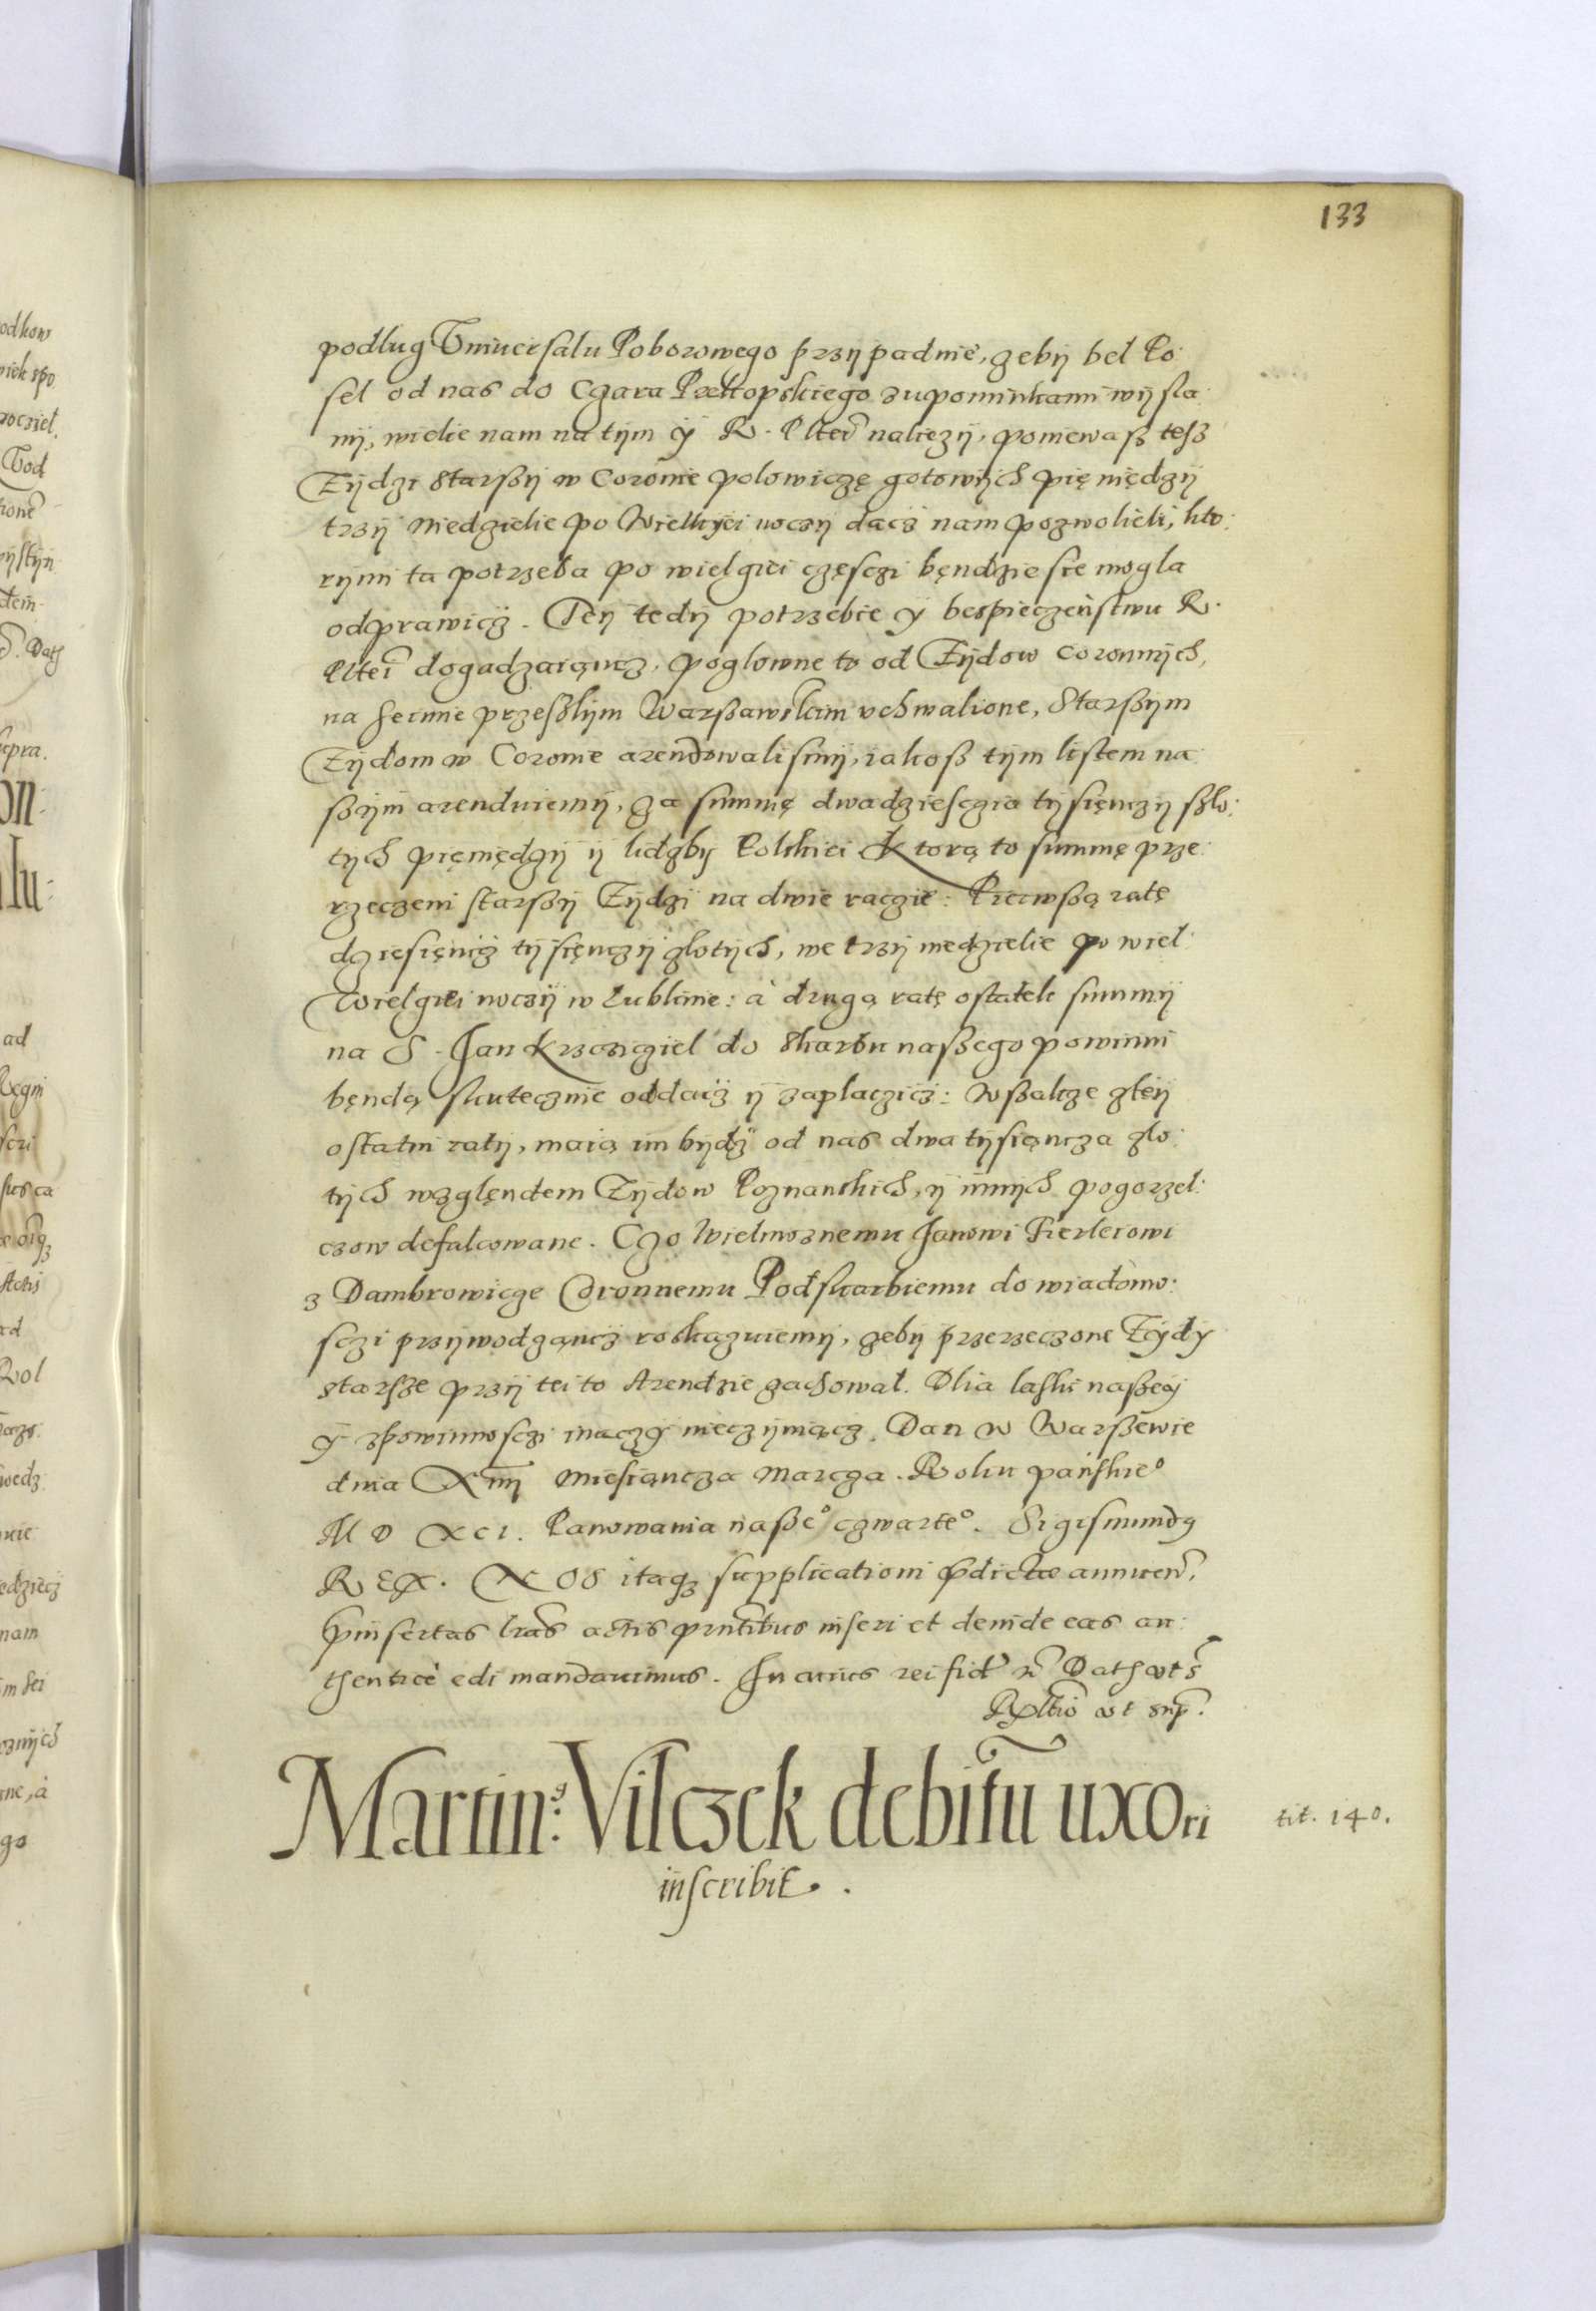 133
podlug Vniuersalu Poborowego przypadnie, zeby bel Po:
sel od nas do Czara Praektopskiego z upominkami wysla:
ny, wielie nam na tym y R. Pltei naliezy, poniewaß tesz
Zydzi starßy w Coronie polowiczę gotowych pięniędzy
trzy Niedzielie po Wielkiei noczy dacz nam pozwolieli, kto:
rymi ta potrzeba po wielgiei częsczi bęndzie sie mogla
odprawicz. Tey tedy potrzebie y bespieczeństwu R.
Pltei dogadzaiąncz, poglowne to od Zydow coronnych,
na Seimie przeszlym Warßawskim vchwalione, Starßym
Zydom w Coronie arendowalismy, iakoß tym listem na:
ßzym arenduiemy, za summę dwadziesczia tysięnczy szlo:
tych pięniędzy y lidzby Polskiei Ktorą to summę prze:
rzeczeni starßy Zydzi na dwie raczie: Pierwßą ratę
dziesięncz tysięnczy zlotych, we trzy niedzielie po wiel:
Wielgiei noczy w Lublinie: à drugą ratę ostatek summy
na S. Jan Krzcziciel do Skarbu naßzego powinni
bęndą skutecznie oddacz y zaplaczicz: Wßakze ztey
ostatni raty, maią im bydz od nas dwa tysiącza zlo:
tych wzglęndem Zydow Poznanskich, y innych pogorzel:
czow defalcowane. Czo Wielmoznemu Janowi Fierleiowi
z Dambrowicze Coronnemu Podskarbiemu do wiadomo:
sczi przywodząncz roskazuiemy, zeby przerzeczone Zydy
starsze przy tei to Arendzie zachowal. Dlia laski naßey
y zpowinnosczi inaczy nieczyniącz. Dan w Warßewie
dnia XIIII Miesiąncza Marcza. Roku pańskie°
M D XCI. Panowania naßze° czwarte°. Sigismundus
REX. NOS itaq; supplicationi pdictae annuen.
pinsertas lras actis pntibus inseri et deinde eas au:
thentice edi mandauimus. In cuius rei fid. n. Dat. vt s.
Rltio vt sup.
Martin9: Vilczek debitū uxori
inscribit.
tit. 140.